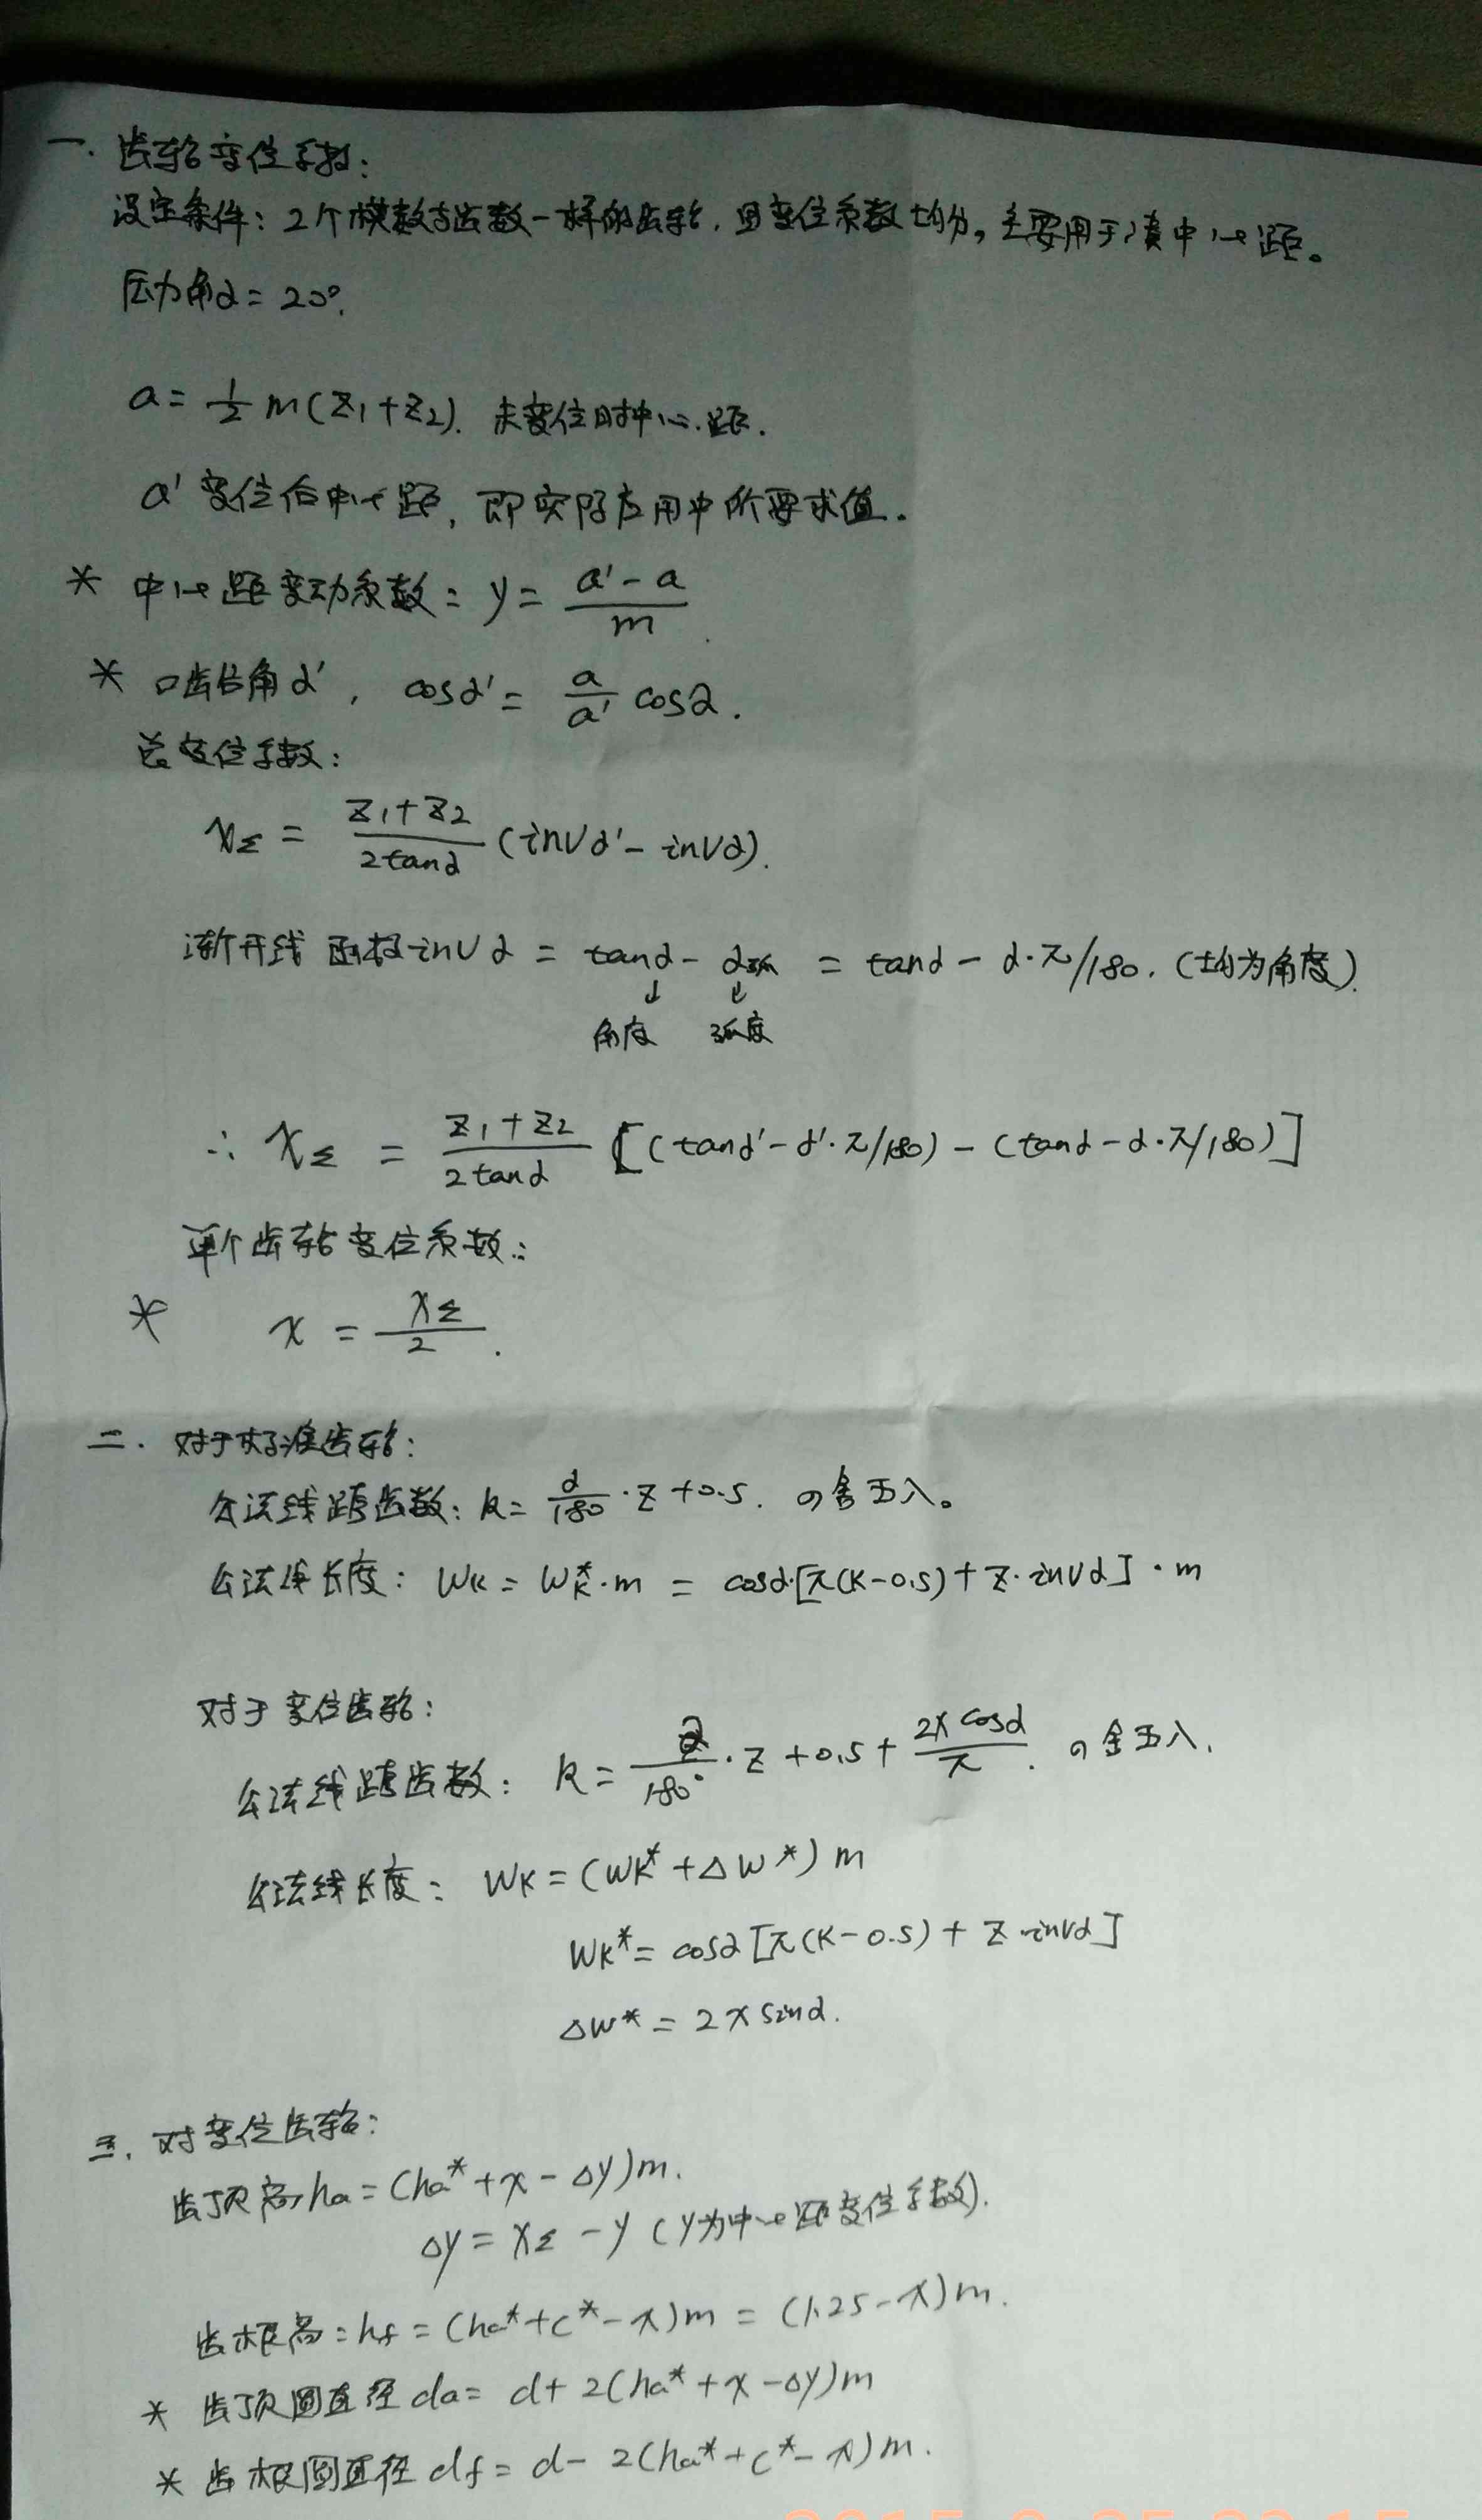 一. 齿轮变位系数:
设定条件: 2个模数与齿数一样的齿轮, 且变位系数均分。主要用于凑中心距。
压力角α=20°.
a = 1/2 m(z1+z2). 未变位时中心距.
a' 变位后中心距, 即实际应用中所要求值.
* 中心距变动系数: y = (a'-a)/m.
* 啮合角α', cosα' = a/a' cosα.
总变位系数:
xΣ = (z1+z2)/(2tanα) (invα'-invα).
渐开线函数invα = tanα - α弧 = tanα - α·π/180. (均为角度).
↓ ↓
角度 弧度
∴ xΣ = (z1+z2)/(2tanα) [(tanα'-α'·π/180)-(tanα-α·π/180)]
单个齿轮变位系数:
* x = xΣ/2.
二. 对于标准齿轮:
公法线跨齿数: k = α/180·z+0.5. 四舍五入。
公法线长度: Wk = Wk*·m = cosα·[π(k-0.5)+z·invα]·m
对于变位齿轮:
公法线跨齿数: k = α/180°·z+0.5+(2xcosα)/π. 四舍五入.
公法线长度: Wk=(Wk*+△W*)m
Wk*=cosα[π(k-0.5)+z·invα]
△W*=2xsinα.
三. 对变位齿轮:
齿顶高ha=(ha*+x-△y)m.
△y=xΣ-y (y为中心距变位系数).
齿根高: hf=(ha*+c*-x)m=(1.25-x)m.
* 齿顶圆直径da=d+2(ha*+x-△y)m
* 齿根圆直径df=d-2(ha*+c*-x)m.